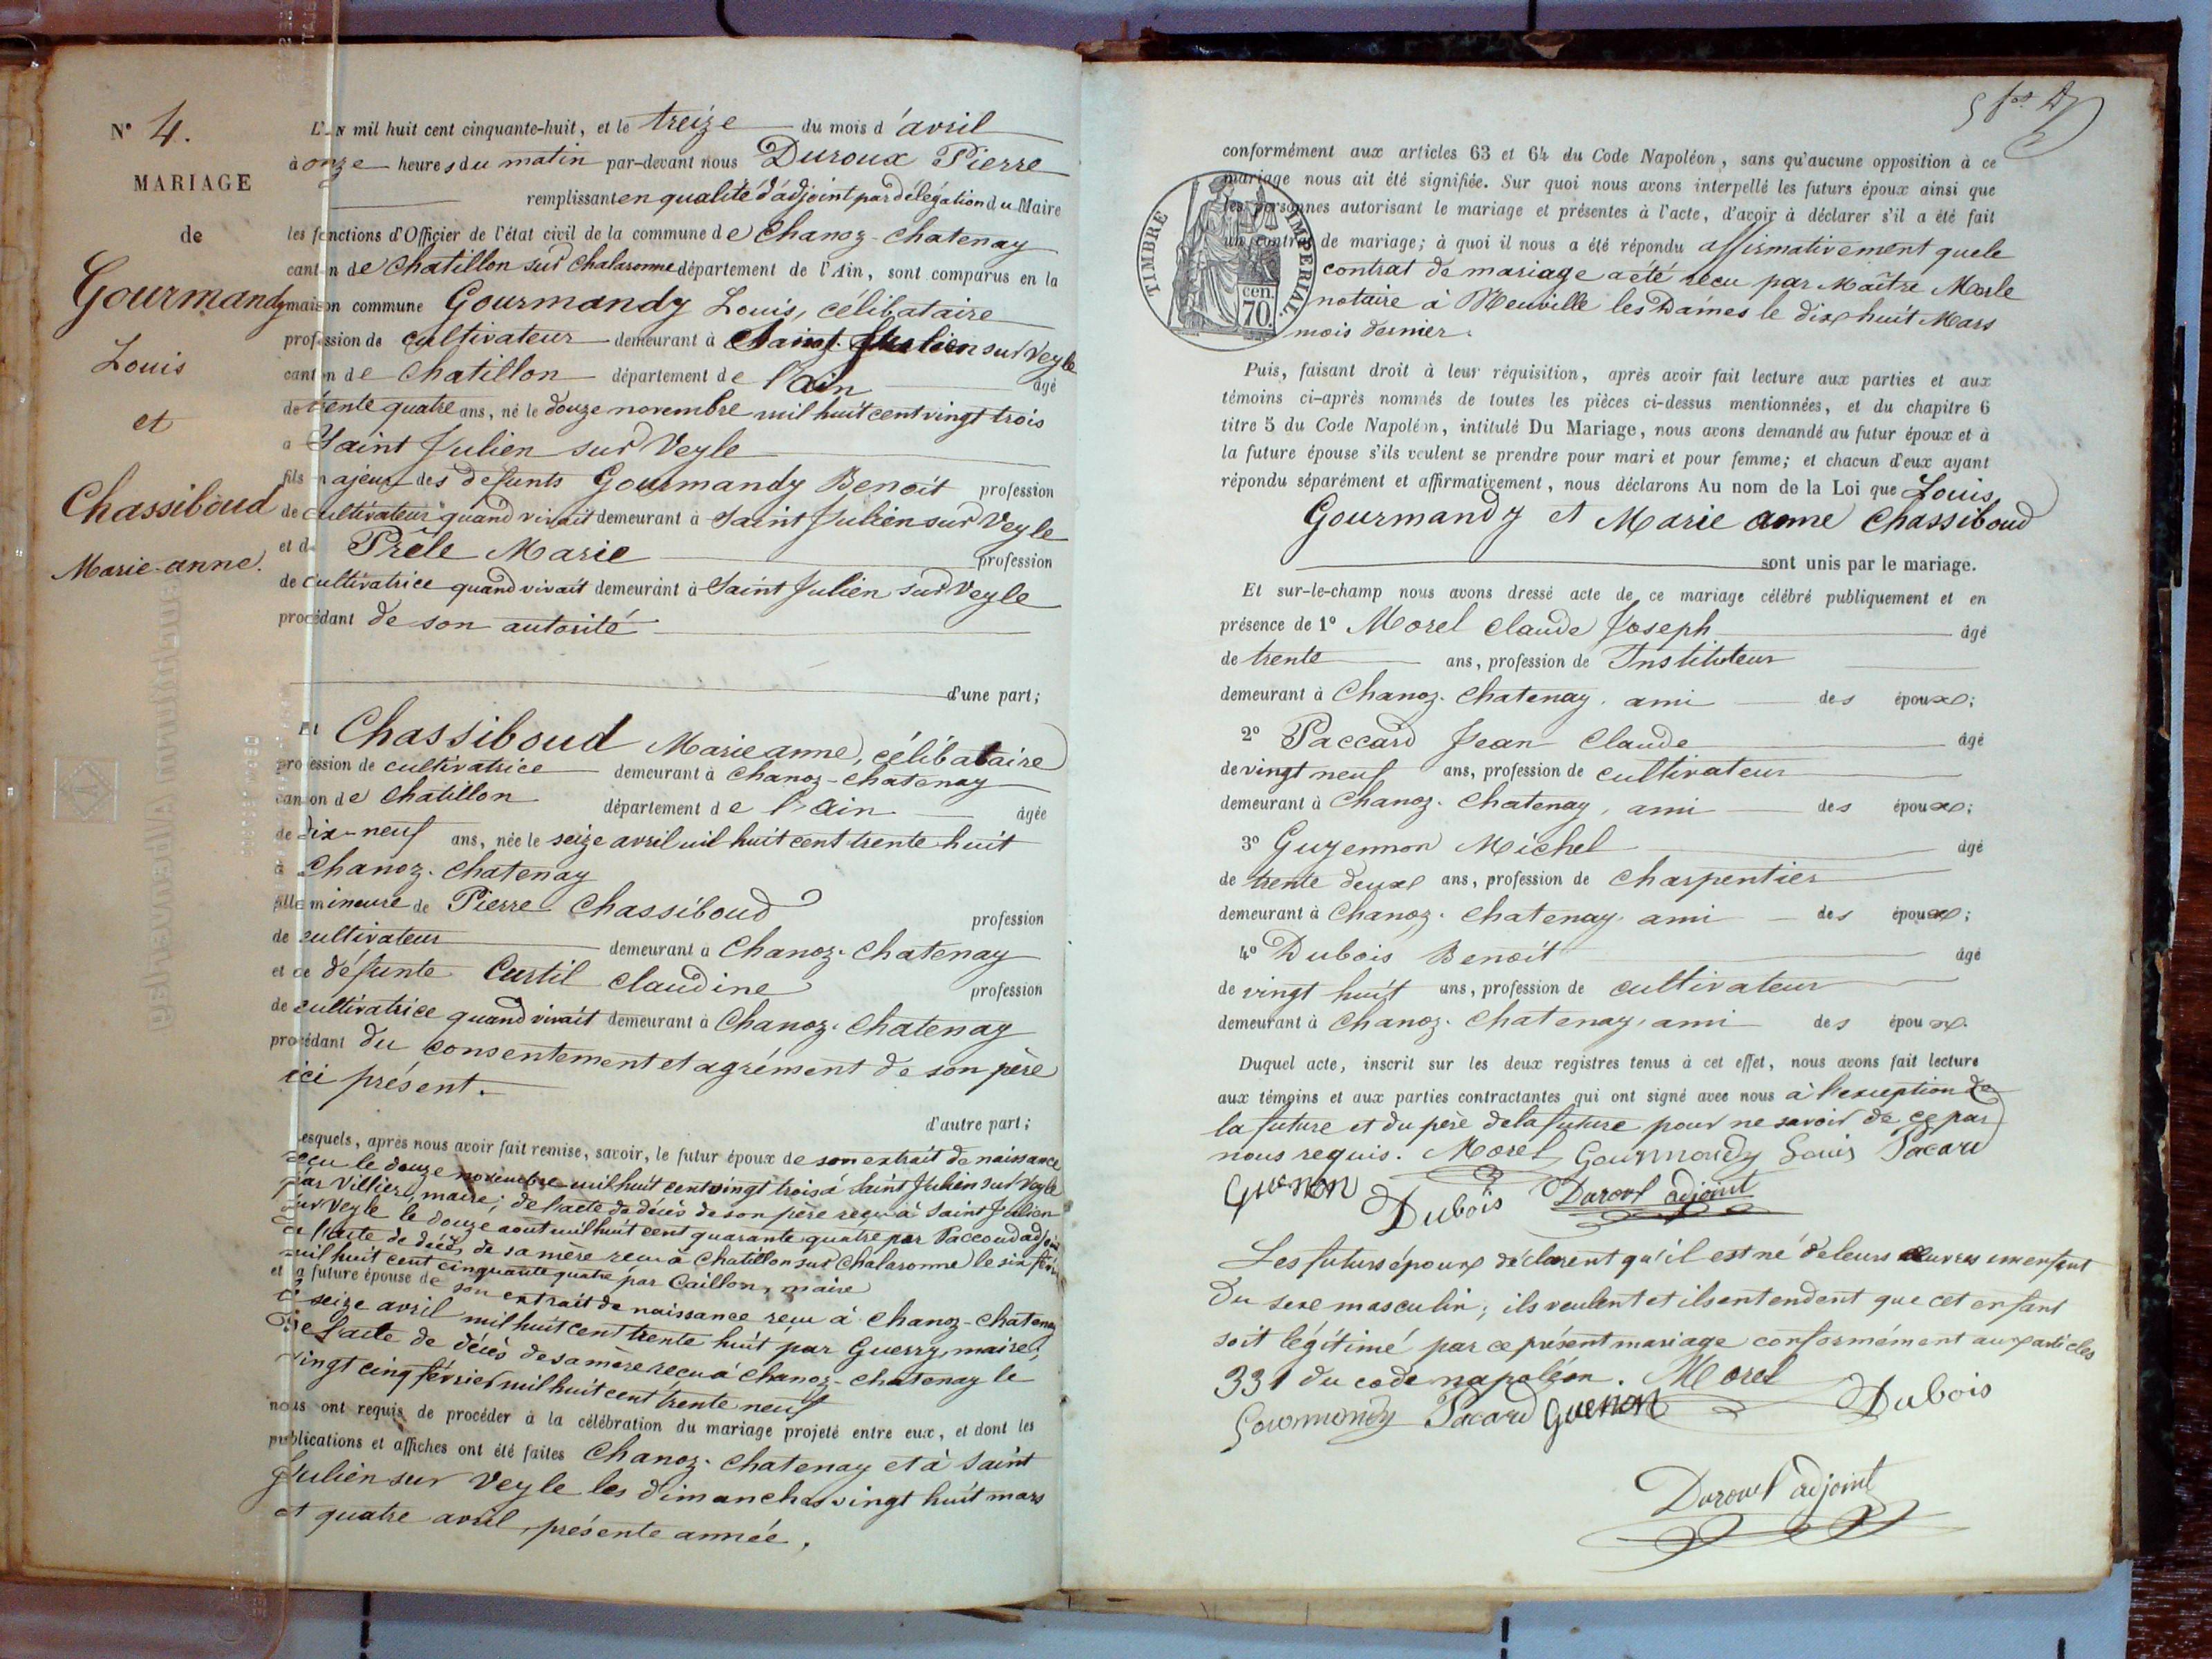 N° 4.
MARIAGE
de
Gourmandy
Louis
et
Chassiboud
Marie-anne.
L'an mil huit cent cinquante-huit, et le treize du mois d'avril
à onze heures du matin par-devant nous Duroux Pierre
remplissant en qualité d'adjoint par délégation du Maire
les fonctions d'Officier de l'état civil de la commune de Chanoz-Chatenay
canton de Chatillon sur Chalaronne département de l'Ain, sont comparus en la
maison commune Gourmandy Louis, célibataire
profession de cultivateur demeurant à Saint Julien sur Veyle
canton de Chatillon département de l'ain âgé
de trente quatre ans, né le douze novembre mil huit cent vingt trois
a Saint Julien sur Veyle
fils majeur des défunts Gourmandy Benoit profession
de cultivateur quand vivait demeurant à Saint Julien sur Veyle
et de Prêle Marie profession
de cultivatrice quand vivait demeurant à Saint Julien sur Veyle
procédant de son autorité
d'une part;
Et Chassiboud Marie anne, célibataire
profession de cultivatrice demeurant à Chanoz-Chatenay
canton de Chatillon département de l'Ain âgée
de dix-neuf ans, née le seize avril mil huit cent trente huit
à Chanoz-Chatenay
fille mineure de Pierre Chassiboud profession
de cultivateur demeurant à Chanoz-Chatenay
et de défunte Curtil Claudine profession
de cultivatrice quand vivait demeurant à Chanoz-Chatenay
procédant du consentement et agrément de son père
ici présent.
d'autre part;
Lesquels, après nous avoir fait remise, savoir, le futur époux de son extrait de naissance
reçu le douze novembre mil huit cent vingt trois à Saint Julien sur Veyle
par Villier, maire; de l'acte de décès de son père reçu à Saint Julien
sur Veyle le douze aout mil huit cent quarante quatre par Paccoud adjoint
de l'acte de décès de sa mère reçu à Chatillon sur Chalaronne le six
mil huit cent cinquante quatre par Caillon, maire
et la future épouse de son extrait de naissance reçu à Chanoz-Chatenay
le seize avril mil huit cent trente huit par Guerry, maire;
De l'acte de décès de sa mère reçu à Chanoz-Chatenay le
vingt cinq février mil huit cent trente neuf
nous ont requis de procéder à la célébration du mariage projeté entre eux, et dont les
publications et affiches ont été faites Chanoz-Chatenay et à Saint
Julien sur Veyle les dimanches vingt huit mars
et quatre avril, présente année.
conformément aux articles 63 et 64 du Code Napoléon, sans qu'aucune opposition à ce
mariage nous ait été signifiée. Sur quoi nous avons interpellé les futurs époux ainsi que
les personnes autorisant le mariage et présentes à l'acte, d'avoir à déclarer s'il a été fait
un contrat de mariage; à quoi il nous a été répondu affirmativement que le
contrat de mariage a été reçu par Maître Morle
notaire à Neuville les Dames le dix huit Mars
mois dernier.
TIMBRE IMPERIAL.
cen.
70.
Puis, faisant droit à leur réquisition, après avoir fait lecture aux parties et aux
témoins ci-après nommés de toutes les pièces ci-dessus mentionnées, et du chapitre 6
titre 5 du Code Napoléon, intitulé Du Mariage, nous avons demandé au futur époux et à
la future épouse s'ils veulent se prendre pour mari et pour femme; et chacun d'eux ayant
répondu séparément et affirmativement, nous déclarons Au nom de la Loi que Louis
Gourmandy et Marie anne Chassiboud
sont unis par le mariage.
Et sur-le-champ nous avons dressé acte de ce mariage célébré publiquement et en
présence de 1° Morel Claude Joseph âgé
de trente ans, profession de Instituteur
demeurant à Chanoz-Chatenay, ami des époux;
2° Paccard Jean Claude âgé
de vingt neuf ans, profession de cultivateur
demeurant à Chanoz-Chatenay, ami des époux;
3° Guyennon Michel âgé
de trente deux ans, profession de charpentier
demeurant à Chanoz-Chatenay ami des époux;
4° Dubois Benoit âgé
de vingt huit ans, profession de cultivateur
demeurant à Chanoz-Chatenay, ami des époux.
Duquel acte, inscrit sur les deux registres tenus à cet effet, nous avons fait lecture
aux témoins et aux parties contractantes qui ont signé avec nous à l'exception de
la future et du père de la future pour ne savoir de ce par
nous requis. Morel Gourmandy Louis Pacard
Guenon Dubois Duroux adjoint
Les futurs époux déclarent qu'il est né de leurs œuvres un enfant
Du sexe masculin; ils veulent et ils entendent que cet enfant
soit légitimé par ce présent mariage conformément aux articles
331 du code napoléon. Morel
Gourmandy Pacard Guenon Dubois
Duroux adjoint